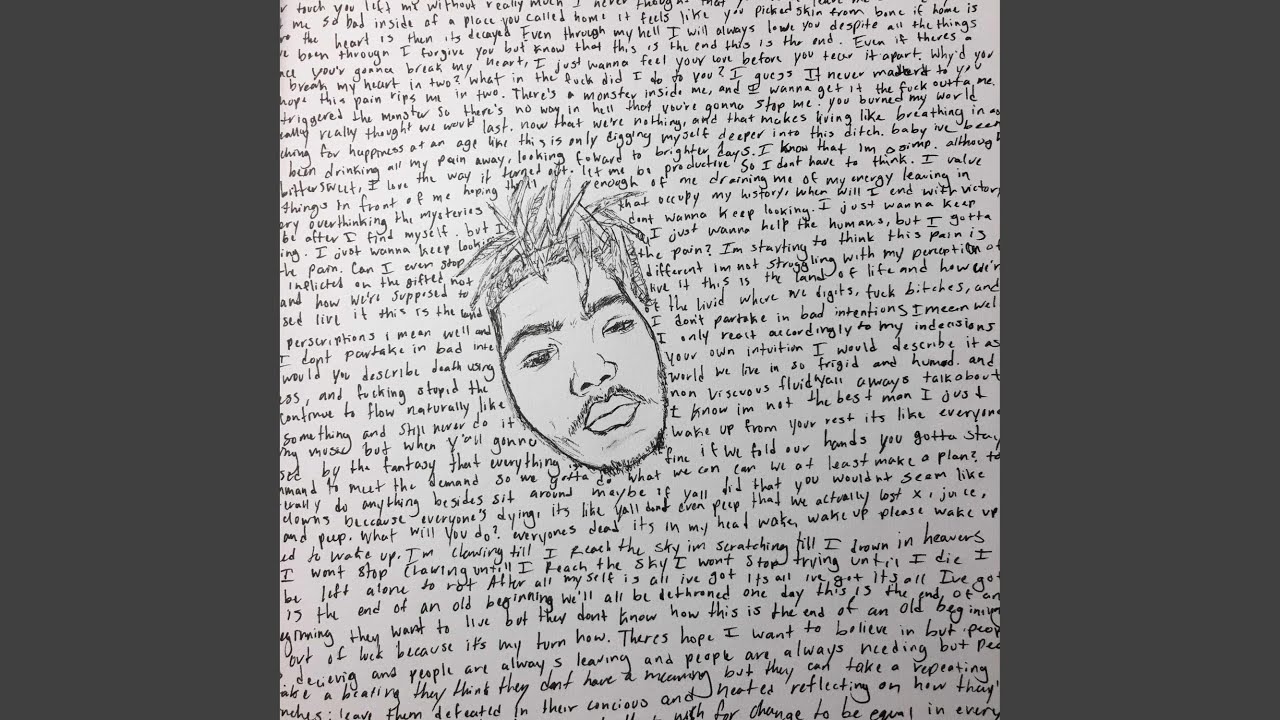 touch you left my without really much I never thought that you
me so bad inside of a place you called home it feels like you picked skin from bone if home is
the heart is then its decayed Even through my hell I will always love you despite all the things
been through I forgive you but know that this is the end this is the end. Even if there's a
you'r gonna break my heart, I just wanna feel your love before you tear it apart. Why'd you
break my heart in two? what in the fuck did I do to you? I guess It never mattered to you
hope this pain rips me in two. There's a monster inside me, and I wanna get it the fuck outta me.
triggered the monster so there's no way in hell that you're gonna stop me. you burned my world
really thought we would last. now that we're nothing, and that makes living like breathing in
ching for happiness at an age like this is only digging myself deeper into this ditch. baby ive been
been drinking all my pain away, looking foward to brighter days. I know that Im a simp. although
bittersweet, I love the way it turned out. let me be productive So I dont have to think. I value
things in front of me hoping enough of me draining me of my energy leaving in
ory overthinking the mysteries that occupy my history, when will I end with victory
be after I find myself. but I dont wanna keep looking. I just wanna keep
ing. I just wanna keep looking I just wanna help the humans, but I gotta
the pain. Can I even stop the pain? Im starting to think this pain is
inflicted on the gifted not different im not struggling with my perception of
and how we're supposed to live it this is the land of life and how we'r
sed live it this is the land of the livid where we digits, fuck bitches, and
perscriptions i mean well and I don't partake in bad intentions I meen wel
I dont partake in bad inte I only react accordingly to my indecisions
would you describe death using your own intuition I would describe it as
cos, and fucking stupid the world we live in so frigid and humod. and
continue to flow naturally like non viscuous fluid yall always talk about
something and still never do it I know im not the best man I just
my music but when y'all gonna wake up from your rest its like everyone
sed by the fantasy that everything is fine if we fold our hands you gotta stay
mmand to meet the demand so we gotta do what we can can we at least make a plan? to
urally do anything besides sit around maybe if yall did that you wouldnt seem like
clowns beccause everyone's dying, its like yall dont even peep that we actually lost x, juice,
and peep. What will you do? everyones dead its in my head wake, wake up please wake up
ed to wake up. I'm clawing till I reach the sky im scratching till I drown in heavens
I wont stop clawing untill I Reach the sky I wont stop trying until I die I
be left alone to rot After all myself is all ive got Its all ive got Its all Ive got
is the end of an old beginning we'll all be dethroned one day this is the end, of an
eginning they want to live but they dont know how this is the end of an old beginning
out of luck because it's my turn now. Theres hope I want to believe in but peop
decievig and people are always leaving and people are always needing but peo
ake a beating they think they dont have a meaning but they can take a repeating
nches; leave them defeated in their concious and heated reflecting on how they'
wish for change to be equal in every